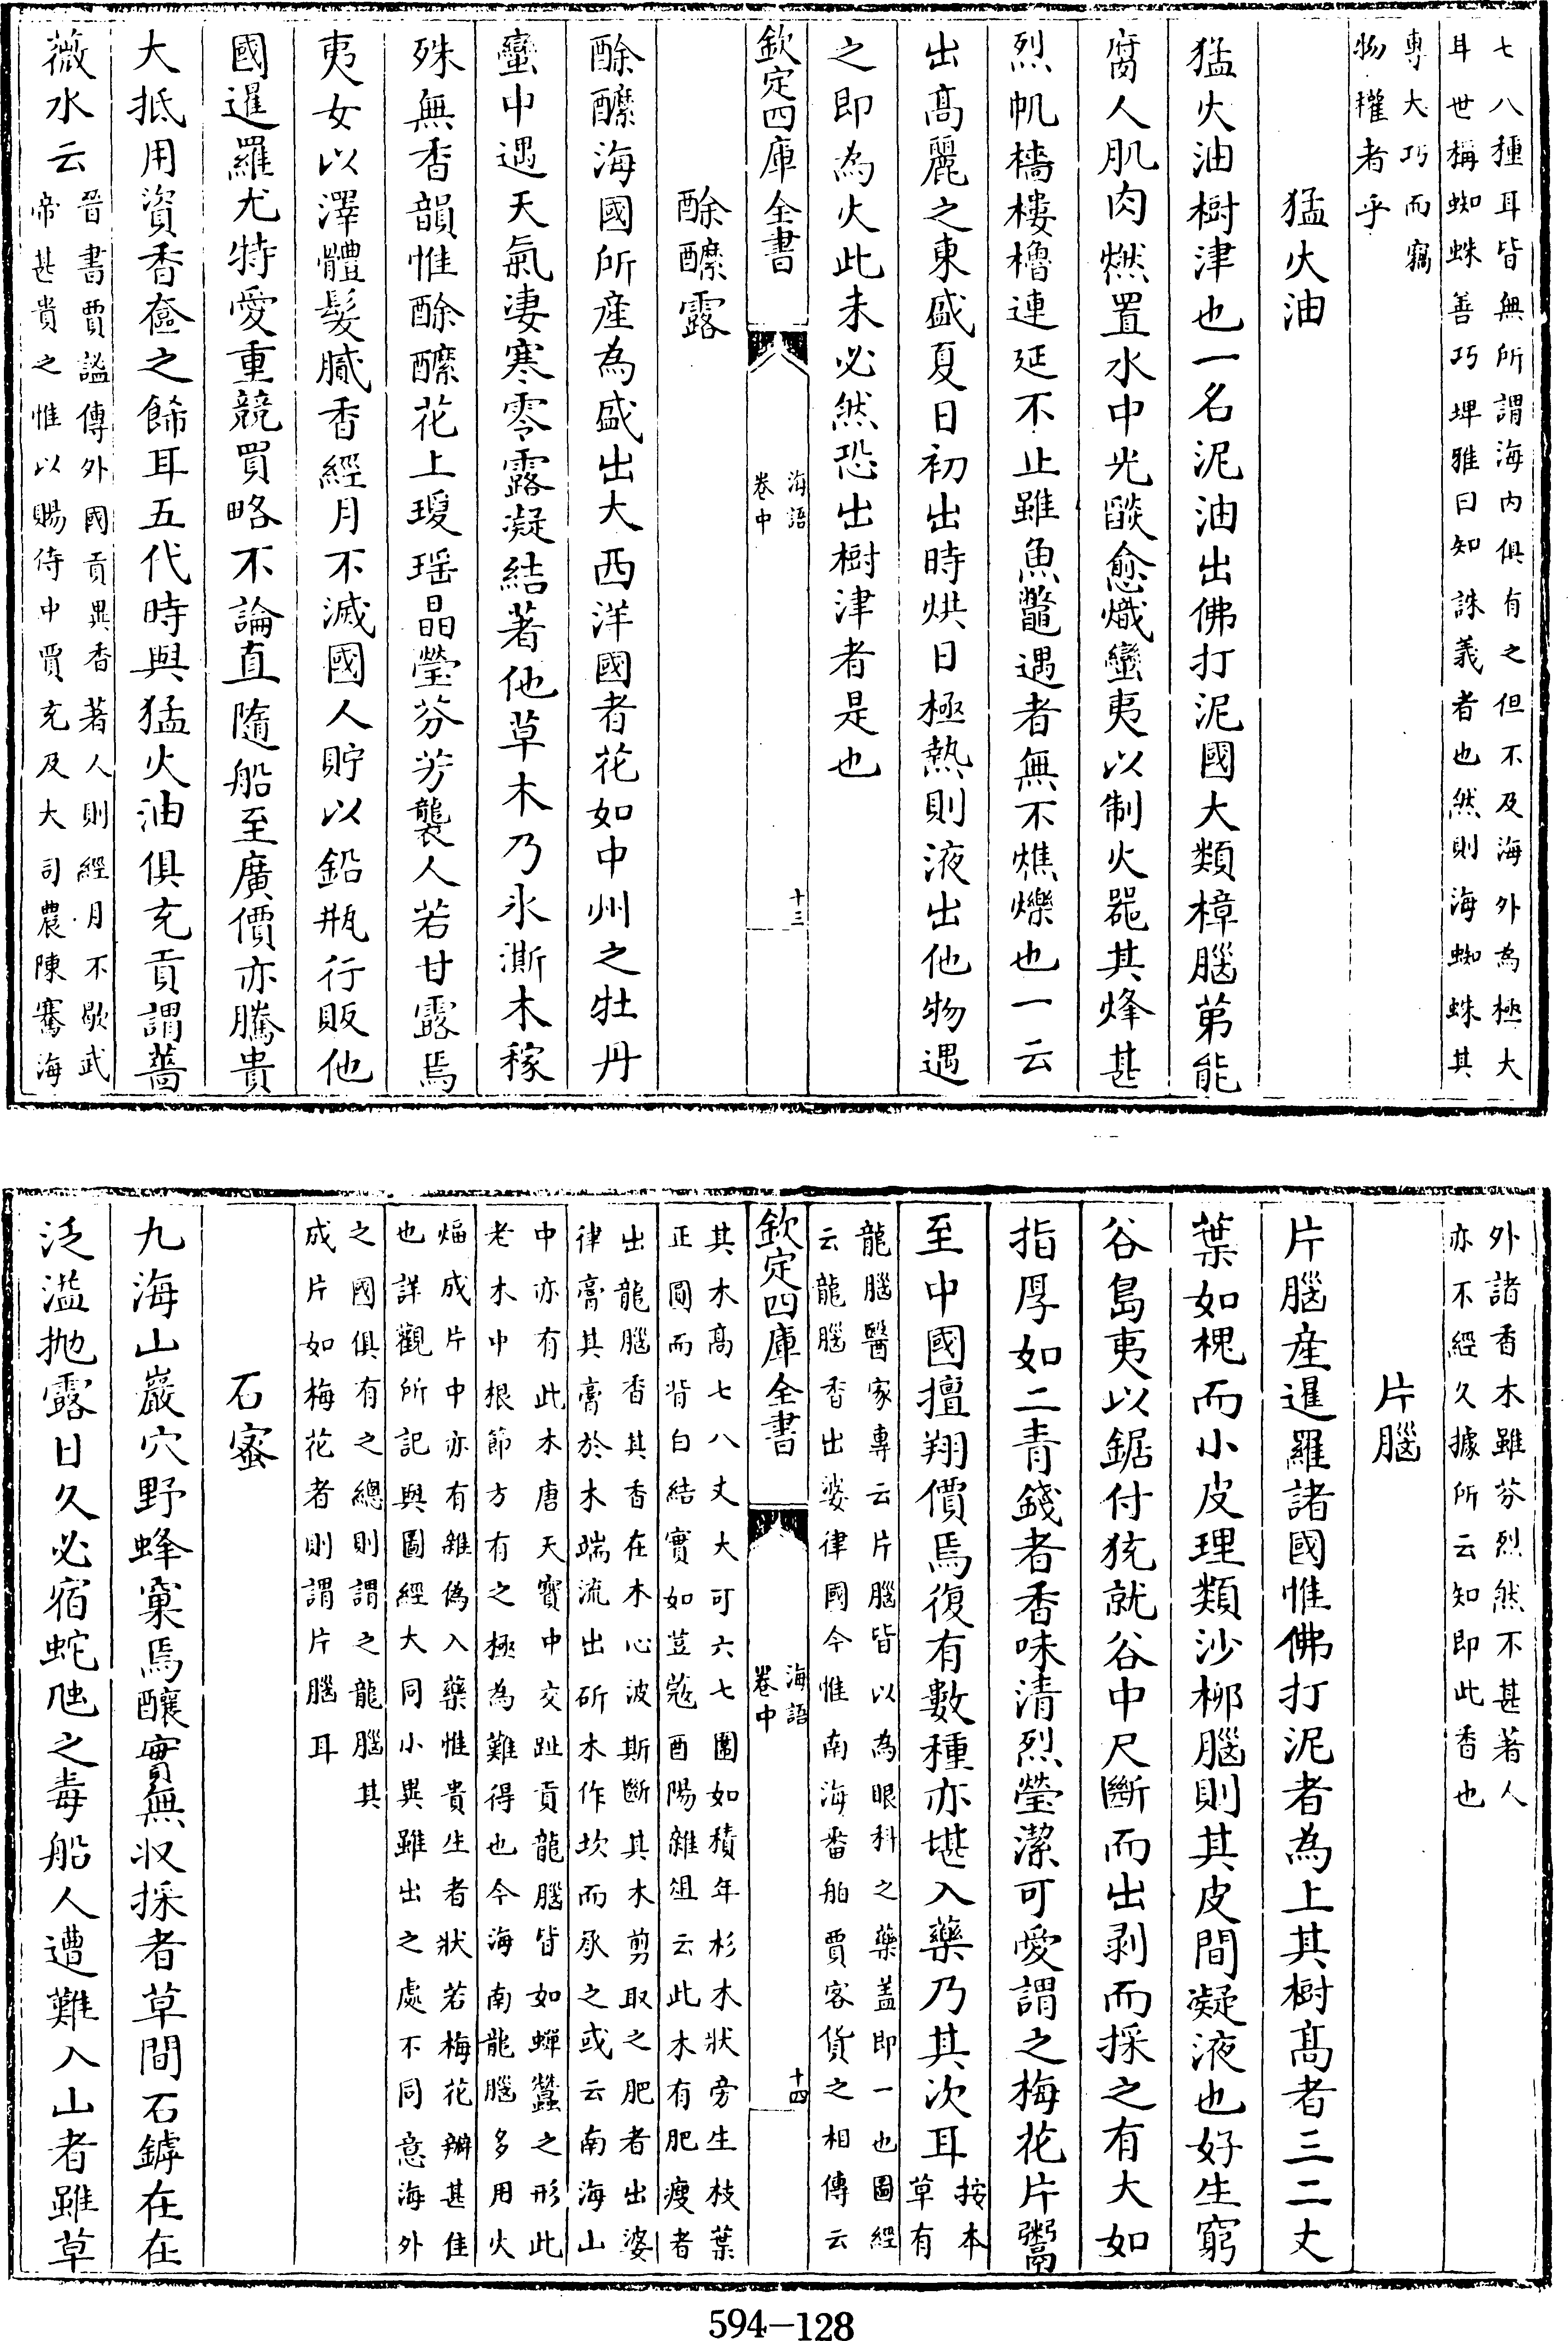 七八種耳皆無所謂海内俱有之但不及海外為極大
耳世稱蜘蛛善巧埤雅曰知誅義者也然則海蜘蛛其
專大巧而竊
物權者乎
猛火油
猛火油樹津也一名泥油出佛打泥國大類樟腦第能
腐人肌肉燃置水中光燄愈熾蠻夷以制火器其烽甚
烈帆檣樓櫓連延不止雖魚鼈遇者無不燋爍也一云
出高麗之東盛夏日初出時烘日極熱則液出他物遇
之即為火此未必然恐出樹津者是也
欽定四庫全書
海語
卷中
十三
酴醿露
酴醿海國所産為盛出大西洋國者花如中州之牡丹
蠻中遇天氣凄寒零露凝結著他草木乃氷澌木稼
殊無香韻惟酴醿花上瓊瑤晶瑩芬芳襲人若甘露焉
夷女以澤體髮膩香經月不滅國人貯以鉛瓶行販他
國暹羅尤特愛重競買略不論直隨船至廣價亦騰貴
大抵用資香奩之飾耳五代時與猛火油俱充貢謂薔
薇水云
晉書賈謐傳外國貢異香著人則經月不歇武
帝甚貴之惟以賜侍中賈充及大司農陳騫海
外諸香木雖芬烈然不甚著人
亦不經久據所云知即此香也
片腦
片腦産暹羅諸國惟佛打泥者為上其樹高者三二丈
葉如槐而小皮理類沙柳腦則其皮間凝液也好生窮
谷島夷以鋸付狁就谷中尺斷而出剥而採之有大如
指厚如二青錢者香味清烈瑩潔可愛謂之梅花片鬻
至中國擅翔價焉復有數種亦堪入藥乃其次耳
按本
草有
龍腦醫家專云片腦皆以為眼科之藥盖即一也圖經
云龍腦香出婆律國今惟南海番舶賈客貨之相傳云
欽定四庫全書
海語
卷中
十四
其木高七八丈大可六七圍如積年杉木狀旁生枝葉
正圓而背白結實如荳蔻酉陽雜俎云此木有肥瘦者
出龍腦香其香在木心波斯斷其木剪取之肥者出婆
律膏其膏於木端流出斫木作坎而承之或云南海山
中亦有此木唐天寶中交趾貢龍腦皆如蟬蠶之形此
老木中根節方有之極為難得也今海南龍腦多用火
煏成片中亦有雜偽入藥惟貴生者狀若梅花瓣甚佳
也詳觀所記與圖經大同小異雖出之處不同意海外
之國俱有之總則謂之龍腦其
成片如梅花者則謂片腦耳
石蜜
九海山巖穴野蜂窠焉釀實無收採者草間石罅在在
泛滥抛露日久必宿蛇虺之毒船人遭難入山者雖草
594-128